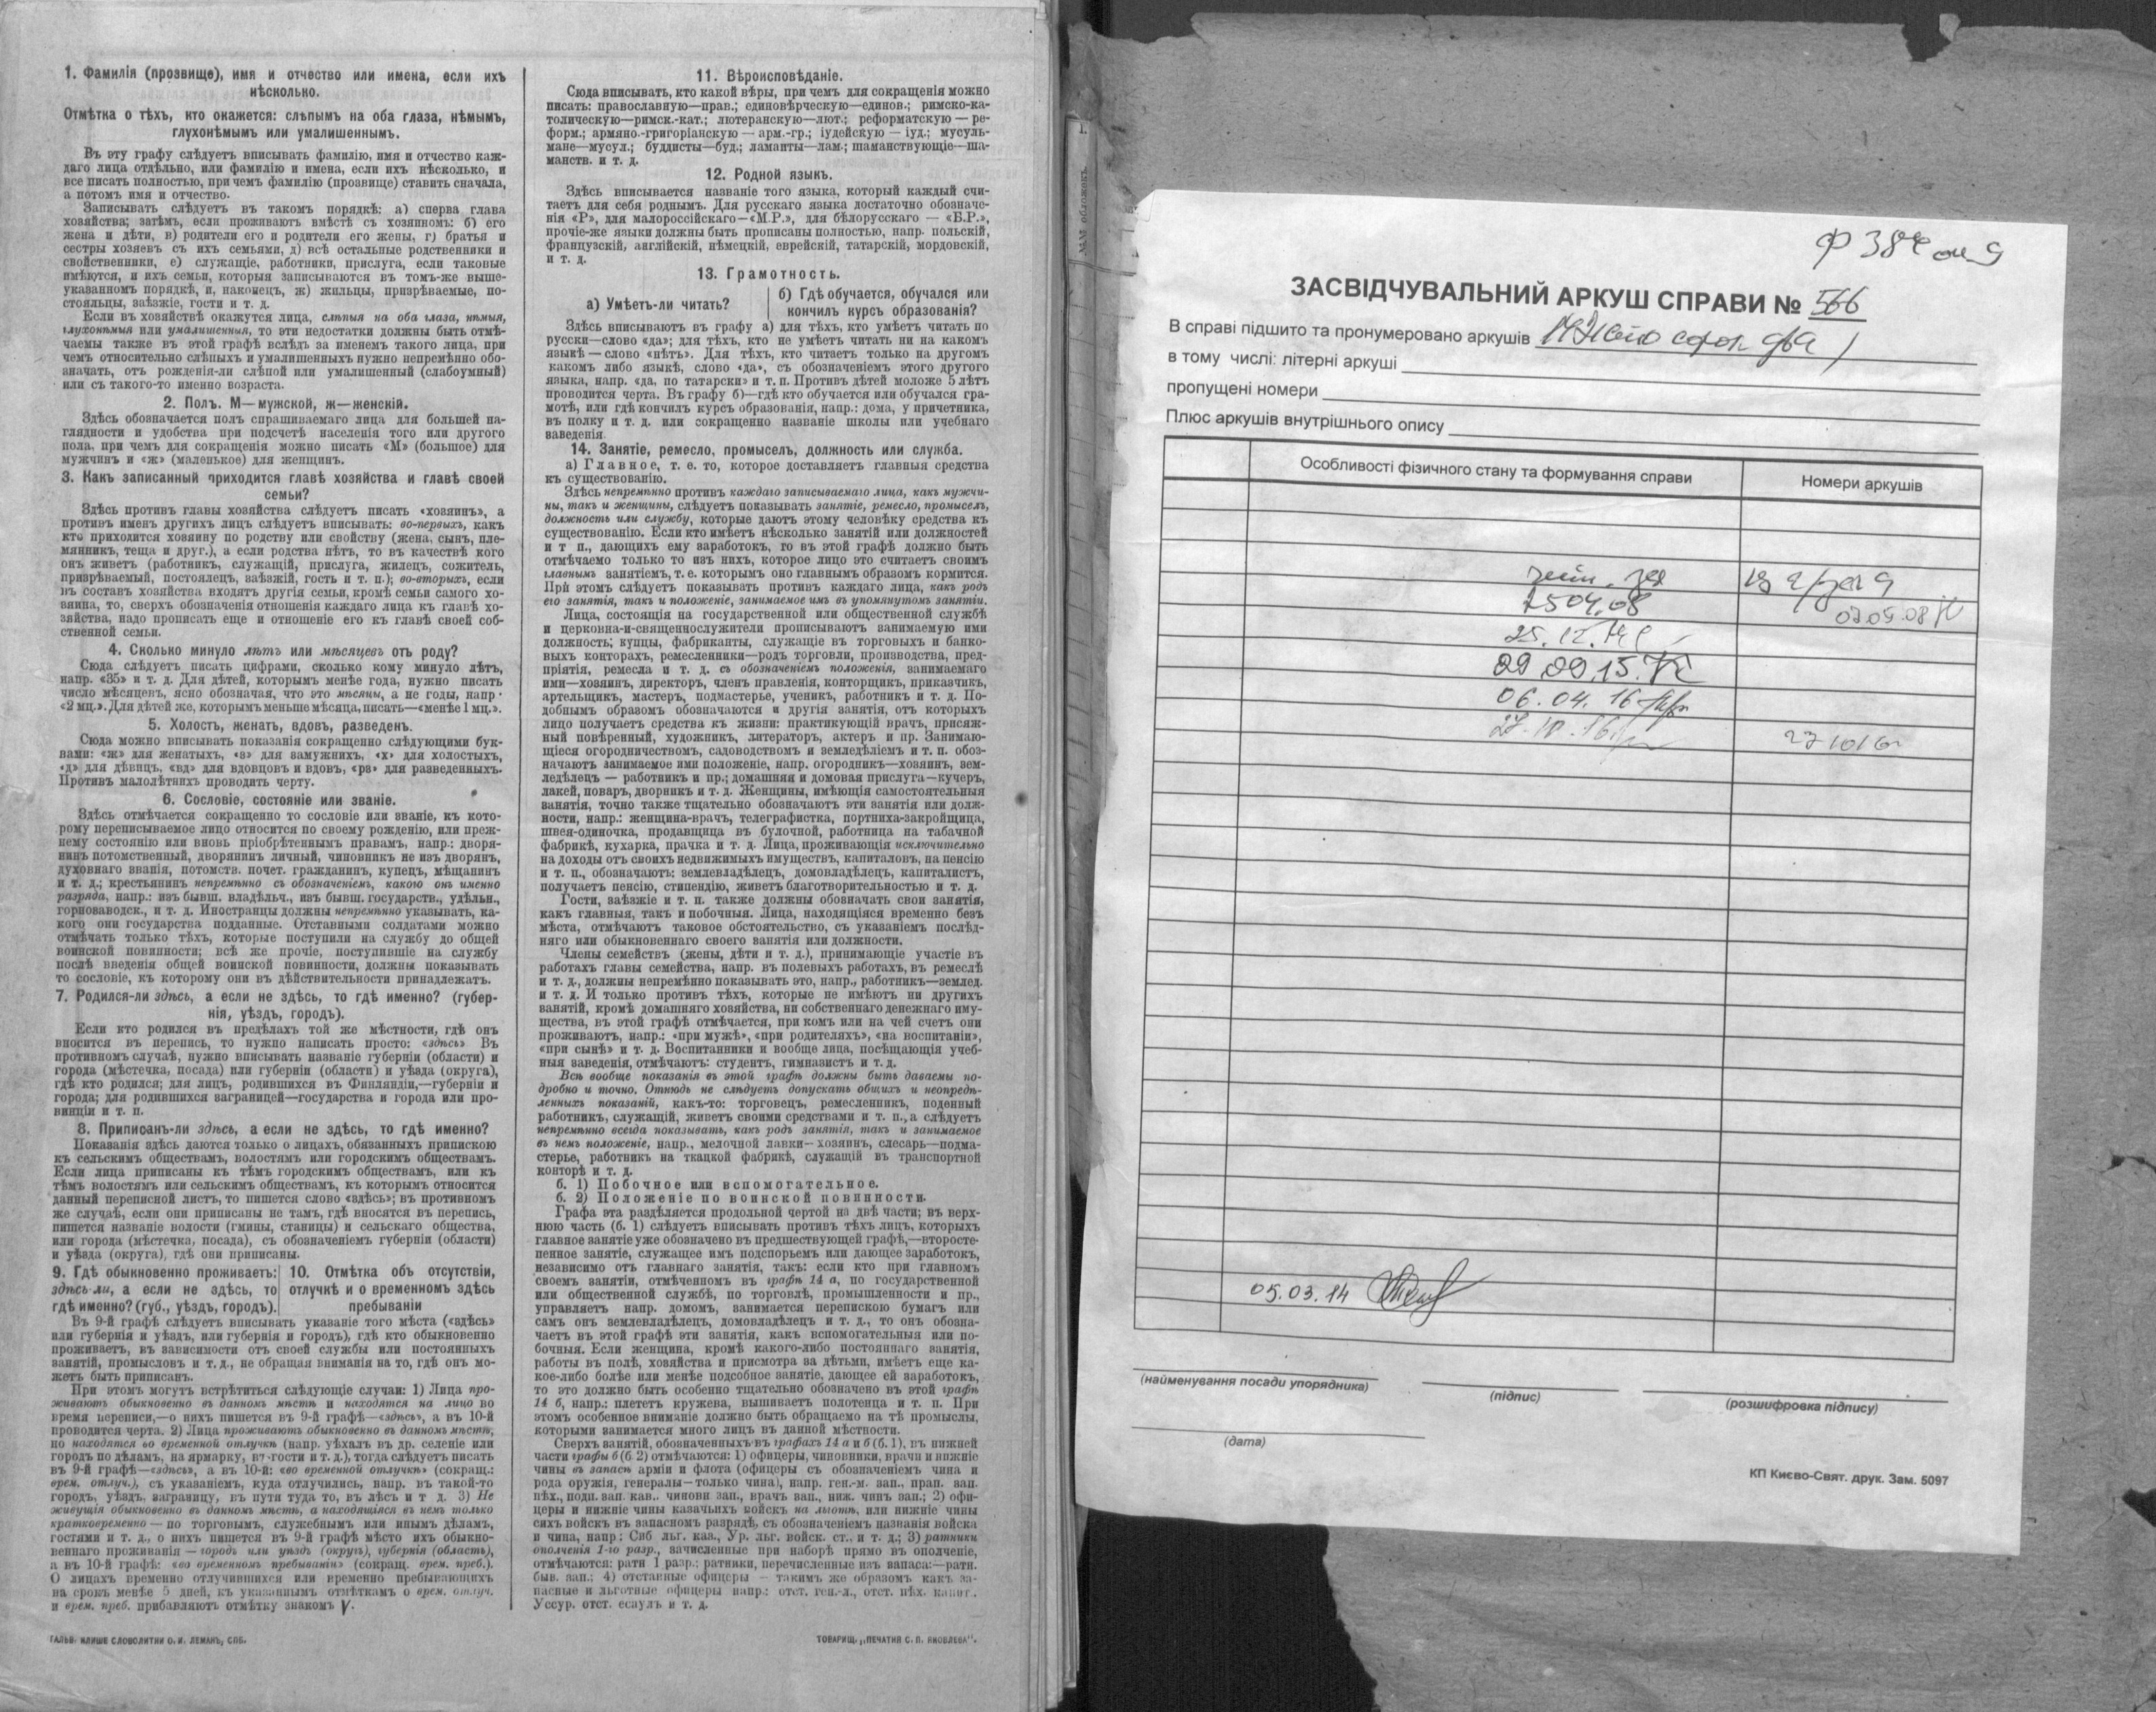 1. Фамилія (прозвище), имя и отчество или имена, если ихъ
нѣсколько.
Отмѣтка о тѣхъ, кто окажется: слѣпымъ на оба глаза, нѣмымъ,
глухонѣмымъ или умалишеннымъ.
Въ эту графу слѣдуетъ вписывать фамилію, имя и отчество каж-
даго лица отдѣльно, или фамилію и имена, если ихъ нѣсколько, и
все писать полностью, при чемъ фамилію (прозвище) ставить сначала,
а потомъ имя и отчество.
Записывать слѣдуетъ въ такомъ порядкѣ: а) сперва глава
хозяйства; затѣмъ, если проживаютъ вмѣстѣ съ хозяиномъ: б) его
жена и дѣти, в) родители его и родители его жены, г) братья и
сестры хозяевъ съ ихъ семьями, д) всѣ остальные родственники и
свойственники, е) служащіе, работники, прислуга, если таковые
имѣются, и ихъ семьи, которыя записываются въ томъ-же выше-
указанномъ порядкѣ, и, наконецъ, ж) жильцы, призрѣваемые, по-
стояльцы, заѣзжіе, гости и т. д.
Если въ хозяйствѣ окажутся лица, слѣпыя на оба глаза, нѣмыя,
глухонѣмыя или умалишенныя, то эти недостатки должны быть отмѣ-
чаемы также въ этой графѣ вслѣдъ за именемъ такого лица, при
чемъ относительно слѣпыхъ и умалишенныхъ нужно непремѣнно обо-
значать, отъ рожденія-ли слѣпой или умалишенный (слабоумный)
или съ такого-то именно возраста.
2. Полъ. М—мужской, ж—женскій.
Здѣсь обозначается полъ спрашиваемаго лица для большей на-
глядности и удобства при подсчетѣ населенія того или другого
пола, при чемъ для сокращенія можно писать «М» (большое) для
мужчинъ и «ж» (маленькое) для женщинъ.
3. Какъ записанный приходится главѣ хозяйства и главѣ своей
семьи?
Здѣсь противъ главы хозяйства слѣдуетъ писать «хозяинъ», а
противъ именъ другихъ лицъ слѣдуетъ вписывать: во-первыхъ, какъ
кто приходится хозяину по родству или свойству (жена, сынъ, пле-
мянникъ, теща и друг.), а если родства нѣтъ, то въ качествѣ кого
онъ живетъ (работникъ, служащій, прислуга, жилецъ, сожитель,
призрѣваемый, постоялецъ, заѣзжій, гость и т. п.); во-вторыхъ, если
въ составъ хозяйства входятъ другія семьи, кромѣ семьи самого хо-
зяина, то, сверхъ обозначенія отношенія каждаго лица къ главѣ хо-
зяйства, надо прописать еще и отношеніе его къ главѣ своей соб-
ственной семьи.
4. Сколько минуло лѣтъ или мѣсяцевъ отъ роду?
Сюда слѣдуетъ писать цифрами, сколько кому минуло лѣтъ,
напр. «35» и т. д. Для дѣтей, которымъ менѣе года, нужно писать
число мѣсяцевъ, ясно обозначая, что это мѣсяцы, а не годы, напр.
«2 мц.». Для дѣтей же, которымъ меньше мѣсяца, писать—«менѣе 1 мц.».
5. Холостъ, женатъ, вдовъ, разведенъ.
Сюда можно вписывать показанія сокращенно слѣдующими бук-
вами: «ж» для женатыхъ, «з» для замужнихъ, «х» для холостыхъ,
«д» для дѣвицъ, «вд» для вдовцовъ и вдовъ, «рз» для разведенныхъ.
Противъ малолѣтнихъ проводить черту.
6. Сословіе, состояніе или званіе.
Здѣсь отмѣчается сокращенно то сословіе или званіе, къ кото-
рому переписываемое лицо относится по своему рожденію, или преж-
нему состоянію или вновь пріобрѣтеннымъ правамъ, напр.: дворя-
нинъ потомственный, дворянинъ личный, чиновникъ не изъ дворянъ,
духовнаго званія, потомств. почет. гражданинъ, купецъ, мѣщанинъ
и т. д.; крестьянинъ непремѣнно съ обозначеніемъ, какого онъ именно
разряда, напр.: изъ бывш. владѣльч., изъ бывш. государств., удѣльн.,
горнозаводск., и т. д. Иностранцы должны непремѣнно указывать, ка-
кого они государства подданные. Отставными солдатами можно
отмѣчать только тѣхъ, которые поступили на службу до общей
воинской повинности; всѣ же прочіе, поступившіе на службу
послѣ введенія общей воинской повинности, должны показывать
то сословіе, къ которому они въ дѣйствительности принадлежатъ.
7. Родился-ли здѣсь, а если не здѣсь, то гдѣ именно? (губер-
нія, уѣздъ, городъ).
Если кто родился въ предѣлахъ той же мѣстности, гдѣ онъ
вносится въ перепись, то нужно написать просто: «здѣсь» Въ
противномъ случаѣ, нужно вписывать названіе губерніи (области) и
города (мѣстечка, посада) или губерніи (области) и уѣзда (округа),
гдѣ кто родился; для лицъ, родившихся въ Финляндіи,—губерніи и
города; для родившихся заграницей—государства и города или про-
винціи и т. п.
8. Приписанъ-ли здѣсь, а если не здѣсь, то гдѣ именно?
Показанія здѣсь даются только о лицахъ, обязанныхъ припискою
къ сельскимъ обществамъ, волостямъ или городскимъ обществамъ.
Если лица приписаны къ тѣмъ городскимъ обществамъ, или къ
тѣмъ волостямъ или сельскимъ обществамъ, къ которымъ относится
данный переписной листъ, то пишется слово «здѣсь»; въ противномъ
же случаѣ, если они приписаны не тамъ, гдѣ вносятся въ перепись,
пишется названіе волости (гмины, станицы) и сельскаго общества,
или города (мѣстечка, посада), съ обозначеніемъ губерніи (области)
и уѣзда (округа), гдѣ они приписаны.
9. Гдѣ обыкновенно проживаетъ:
здѣсь-ли, а если не здѣсь, то
гдѣ именно? (губ., уѣздъ, городъ).
10. Отмѣтка объ отсутствіи,
отлучкѣ и о временномъ здѣсь
пребываніи
Въ 9-й графѣ слѣдуетъ вписывать указаніе того мѣста («здѣсь»
или губернія и уѣздъ, или губернія и городъ), гдѣ кто обыкновенно
проживаетъ, въ зависимости отъ своей службы или постоянныхъ
занятій, промысловъ и т. д., не обращая вниманія на то, гдѣ онъ мо-
жетъ быть приписанъ.
При этомъ могутъ встрѣтиться слѣдующіе случаи: 1) Лица про-
живаютъ обыкновенно въ данномъ мѣстѣ и находятся на лицо во
время переписи,—о нихъ пишется въ 9-й графѣ—«здѣсь», а въ 10-й
проводится черта. 2) Лица проживаютъ обыкновенно въ данномъ мѣстѣ,
но находятся во временной отлучкѣ (напр. уѣхалъ въ др. селеніе или
городъ по дѣламъ, на ярмарку, въ гости и т. д.), тогда слѣдуетъ писать
въ 9-й графѣ—«здѣсь», а въ 10-й: «во временной отлучкѣ» (сокращ.:
врем. отлуч.), съ указаніемъ, куда отлучились, напр. въ такой-то
городъ, уѣздъ, заграницу, въ пути туда то, въ лѣсъ и т д. 3) Не
живущія обыкновенно въ данномъ мѣстѣ, а находящіяся въ немъ только
кратковременно — по торговымъ, служебнымъ или инымъ дѣламъ,
гостями и т. д., о нихъ пишется въ 9-й графѣ мѣсто ихъ обыкно-
веннаго проживанія — городъ или уѣздъ (округъ), губернія (область),
а въ 10-й графѣ: «во временномъ пребываніи» (сокращ. врем. преб.).
О лицахъ временно отлучившихся или временно пребывающихъ
на срокъ менѣе 5 дней, къ указаннымъ отмѣткамъ о врем. отлуч.
и врем. преб. прибавляютъ отмѣтку знакомъ V.
ГАЛЬВ. КЛИШЕ СЛОВОЛИТНИ О. И. ЛЕМАНЪ, СПБ.
11. Вѣроисповѣданіе.
Сюда вписывать, кто какой вѣры, при чемъ для сокращенія можно
писать: православную—прав.; единовѣрческую—единов.; римско-ка-
толическую—римск.-кат.; лютеранскую—лют.; реформатскую — ре-
форм.; армяно.-григоріанскую — арм.-гр.; іудейскую — іуд.; мусуль-
мане—мусул.; буддисты—буд.; ламаиты—лам.; шаманствующіе—ша-
манств. и т. д.
12. Родной языкъ.
Здѣсь вписывается названіе того языка, который каждый счи-
таетъ для себя роднымъ. Для русскаго языка достаточно обозначе-
нія «Р», для малороссійскаго—«М.Р.», для бѣлорусскаго — «Б.Р.»,
прочіе-же языки должны быть прописаны полностью, напр. польскій,
французскій, англійскій, нѣмецкій, еврейскій, татарскій, мордовскій,
и т. д.
13. Грамотность.
а) Умѣетъ-ли читать?
б) Гдѣ обучается, обучался или
кончилъ курсъ образованія?
Здѣсь вписываютъ въ графу а) для тѣхъ, кто умѣетъ читать по
русски—слово «да»; для тѣхъ, кто не умѣетъ читать ни на какомъ
языкѣ — слово «нѣтъ». Для тѣхъ, кто читаетъ только на другомъ
какомъ либо языкѣ, слово «да», съ обозначеніемъ этого другого
языка, напр. «да, по татарски» и т. п. Противъ дѣтей моложе 5 лѣтъ
проводится черта. Въ графу б)—гдѣ кто обучается или обучался гра-
мотѣ, или гдѣ кончилъ курсъ образованія, напр.: дома, у причетника,
въ полку и т. д. или сокращенно названіе школы или учебнаго
заведенія.
14. Занятіе, ремесло, промыселъ, должность или служба.
а) Главное, т. е. то, которое доставляетъ главныя средства
къ существованію.
Здѣсь непремѣнно противъ каждаго записываемаго лица, какъ мужчи-
ны, такъ и женщины, слѣдуетъ показывать занятіе, ремесло, промыселъ,
должность или службу, которые даютъ этому человѣку средства къ
существованію. Если кто имѣетъ нѣсколько занятій или должностей
и т п., дающихъ ему заработокъ, то въ этой графѣ должно быть
отмѣчаемо только то изъ нихъ, которое лицо это считаетъ своимъ
главнымъ занятіемъ, т. е. которымъ оно главнымъ образомъ кормится.
При этомъ слѣдуетъ показывать противъ каждаго лица, какъ родъ
его занятія, такъ и положеніе, занимаемое имъ въ упомянутомъ занятіи.
Лица, состоящія на государственной или общественной службѣ
и церковна-и-священнослужители прописываютъ занимаемую ими
должность; купцы, фабриканты, служащіе въ торговыхъ и банко-
выхъ конторахъ, ремесленники—родъ торговли, производства, пред-
пріятія, ремесла и т. д. съ обозначеніемъ положенія, занимаемаго
ими—хозяинъ, директоръ, членъ правленія, конторщикъ, приказчикъ,
артельщикъ, мастеръ, подмастерье, ученикъ, работникъ и т. д. По-
добнымъ образомъ обозначаются и другія занятія, отъ которыхъ
лицо получаетъ средства къ жизни: практикующій врачъ, присяж-
ный повѣренный, художникъ, литераторъ, актеръ и пр. Занимаю-
щіеся огородничествомъ, садоводствомъ и земледѣліемъ и т. п. обоз-
начаютъ занимаемое ими положеніе, напр. огородникъ—хозяинъ, зем-
ледѣлецъ — работникъ и пр.; домашняя и домовая прислуга—кучеръ,
лакей, поваръ, дворникъ и т. д. Женщины, имѣющія самостоятельныя
занятія, точно также тщательно обозначаютъ эти занятія или долж-
ности, напр.: женщина-врачъ, телеграфистка, портниха-закройщица,
швея-одиночка, продавщица въ булочной, работница на табачной
фабрикѣ, кухарка, прачка и т. д. Лица, проживающія исключительно
на доходы отъ своихъ недвижимыхъ имуществъ, капиталовъ, на пенсію
и т. п., обозначаютъ: землевладѣлецъ, домовладѣлецъ, капиталистъ,
получаетъ пенсію, стипендію, живетъ благотворительностью и т. д.
Гости, заѣзжіе и т. п. также должны обозначать свои занятія,
какъ главныя, такъ и побочныя. Лица, находящіяся временно безъ
мѣста, отмѣчаютъ таковое обстоятельство, съ указаніемъ послѣд-
няго или обыкновеннаго своего занятія или должности.
Члены семействъ (жены, дѣти и т. д.), принимающіе участіе въ
работахъ главы семейства, напр. въ полевыхъ работахъ, въ ремеслѣ
и т. д., должны непремѣнно показывать это, напр., работникъ—землед.
и т. д. И только противъ тѣхъ, которые не имѣютъ ни другихъ
занятій, кромѣ домашняго хозяйства, ни собственнаго денежнаго иму-
щества, въ этой графѣ отмѣчается, при комъ или на чей счетъ они
проживаютъ, напр.: «при мужѣ», «при родителяхъ», «на воспитаніи»,
«при сынѣ» и т. д. Воспитанники и вообще лица, посѣщающія учеб-
ныя заведенія, отмѣчаютъ: студентъ, гимназистъ и т. д.
Всѣ вообще показанія въ этой графѣ должны быть даваемы по-
дробно и точно. Отнюдь не слѣдуетъ допускать общихъ и неопредѣ-
ленныхъ показаній, какъ-то: торговецъ, ремесленникъ, поденный
работникъ, служащій, живетъ своими средствами и т. п., а слѣдуетъ
непремѣнно всегда показывать, какъ родъ занятія, такъ и занимаемое
въ немъ положеніе, напр., мелочной лавки—хозяинъ, слесарь—подма-
стерье, работникъ на ткацкой фабрикѣ, служащій въ транспортной
конторѣ и т. д.
б. 1) Побочное или вспомогательное.
б. 2) Положеніе по воинской повинности.
Графа эта раздѣляется продольной чертой на двѣ части; въ верх-
нюю часть (б. 1) слѣдуетъ вписывать противъ тѣхъ лицъ, которыхъ
главное занятіе уже обозначено въ предшествующей графѣ,—второсте-
пенное занятіе, служащее имъ подспорьемъ или дающее заработокъ,
независимо отъ главнаго занятія, такъ: если кто при главномъ
своемъ занятіи, отмѣченномъ въ графѣ 14 а, по государственной
или общественной службѣ, по торговлѣ, промышленности и пр.,
управляетъ напр. домомъ, занимается перепискою бумагъ или
самъ онъ землевладѣлецъ, домовладѣлецъ и т. д., то онъ обозна-
чаетъ въ этой графѣ эти занятія, какъ вспомогательныя или по-
бочныя. Если женщина, кромѣ какого-либо постояннаго занятія,
работы въ полѣ, хозяйства и присмотра за дѣтьми, имѣетъ еще ка-
кое-либо болѣе или менѣе подсобное занятіе, дающее ей заработокъ,
то это должно быть особенно тщательно обозначено въ этой графѣ
14 б, напр.: плететъ кружева, вышиваетъ полотенца и т. п. При
этомъ особенное вниманіе должно быть обращаемо на тѣ промыслы,
которыми занимается много лицъ въ данной мѣстности.
Сверхъ занятій, обозначенныхъ въ графахъ 14 а и б (б. 1), въ нижней
части графы б (б. 2) отмѣчаются: 1) офицеры, чиновники, врачи и нижніе
чины въ запасѣ арміи и флота (офицеры съ обозначеніемъ чина и
рода оружія, генералы—только чина), напр. ген.-м. зап., прап. зап.
пѣх., подп. зап. кав., чиновн зап., врачъ зап., ниж. чинъ зап.; 2) офи-
церы и нижніе чины казачьихъ войскъ на льготѣ, или нижніе чины
сихъ войскъ въ запасномъ разрядѣ, съ обозначеніемъ названія войска
и чина, напр: Сиб льг. каз., Ур. льг. войск. ст., и т. д.; 3) ратники
ополченія 1-го разр., зачисленные при наборѣ прямо въ ополченіе,
отмѣчаются: ратн 1 разр.; ратники, перечисленные изъ запаса:—ратн.
быв. зап.; 4) отставные офицеры — такимъ же образомъ какъ за-
пасные и льготные офицеры напр.: отст. ген.-л., отст. пѣх. капит.,
Уссур. отст. есаулъ и т. д.
ТОВАРИЩ. „ПЕЧАТНЯ С. П. ЯКОВЛЕВА".
№№ обложекъ.
ф 384 оп 9
ЗАСВІДЧУВАЛЬНИЙ АРКУШ СПРАВИ № 566
В справі підшито та пронумеровано аркушів сорок два
в тому числі: літерні аркуші
пропущені номери
Плюс аркушів внутрішнього опису
Особливості фізичного стану та формування справи
Номери аркушів
2504.08
07.05.08
29.09.15.
06.04.16
05.03.14
(найменування посади упорядника)
(підпис)
(розшифровка підпису)
(дата)
КП Києво-Свят. друк. Зам. 5097